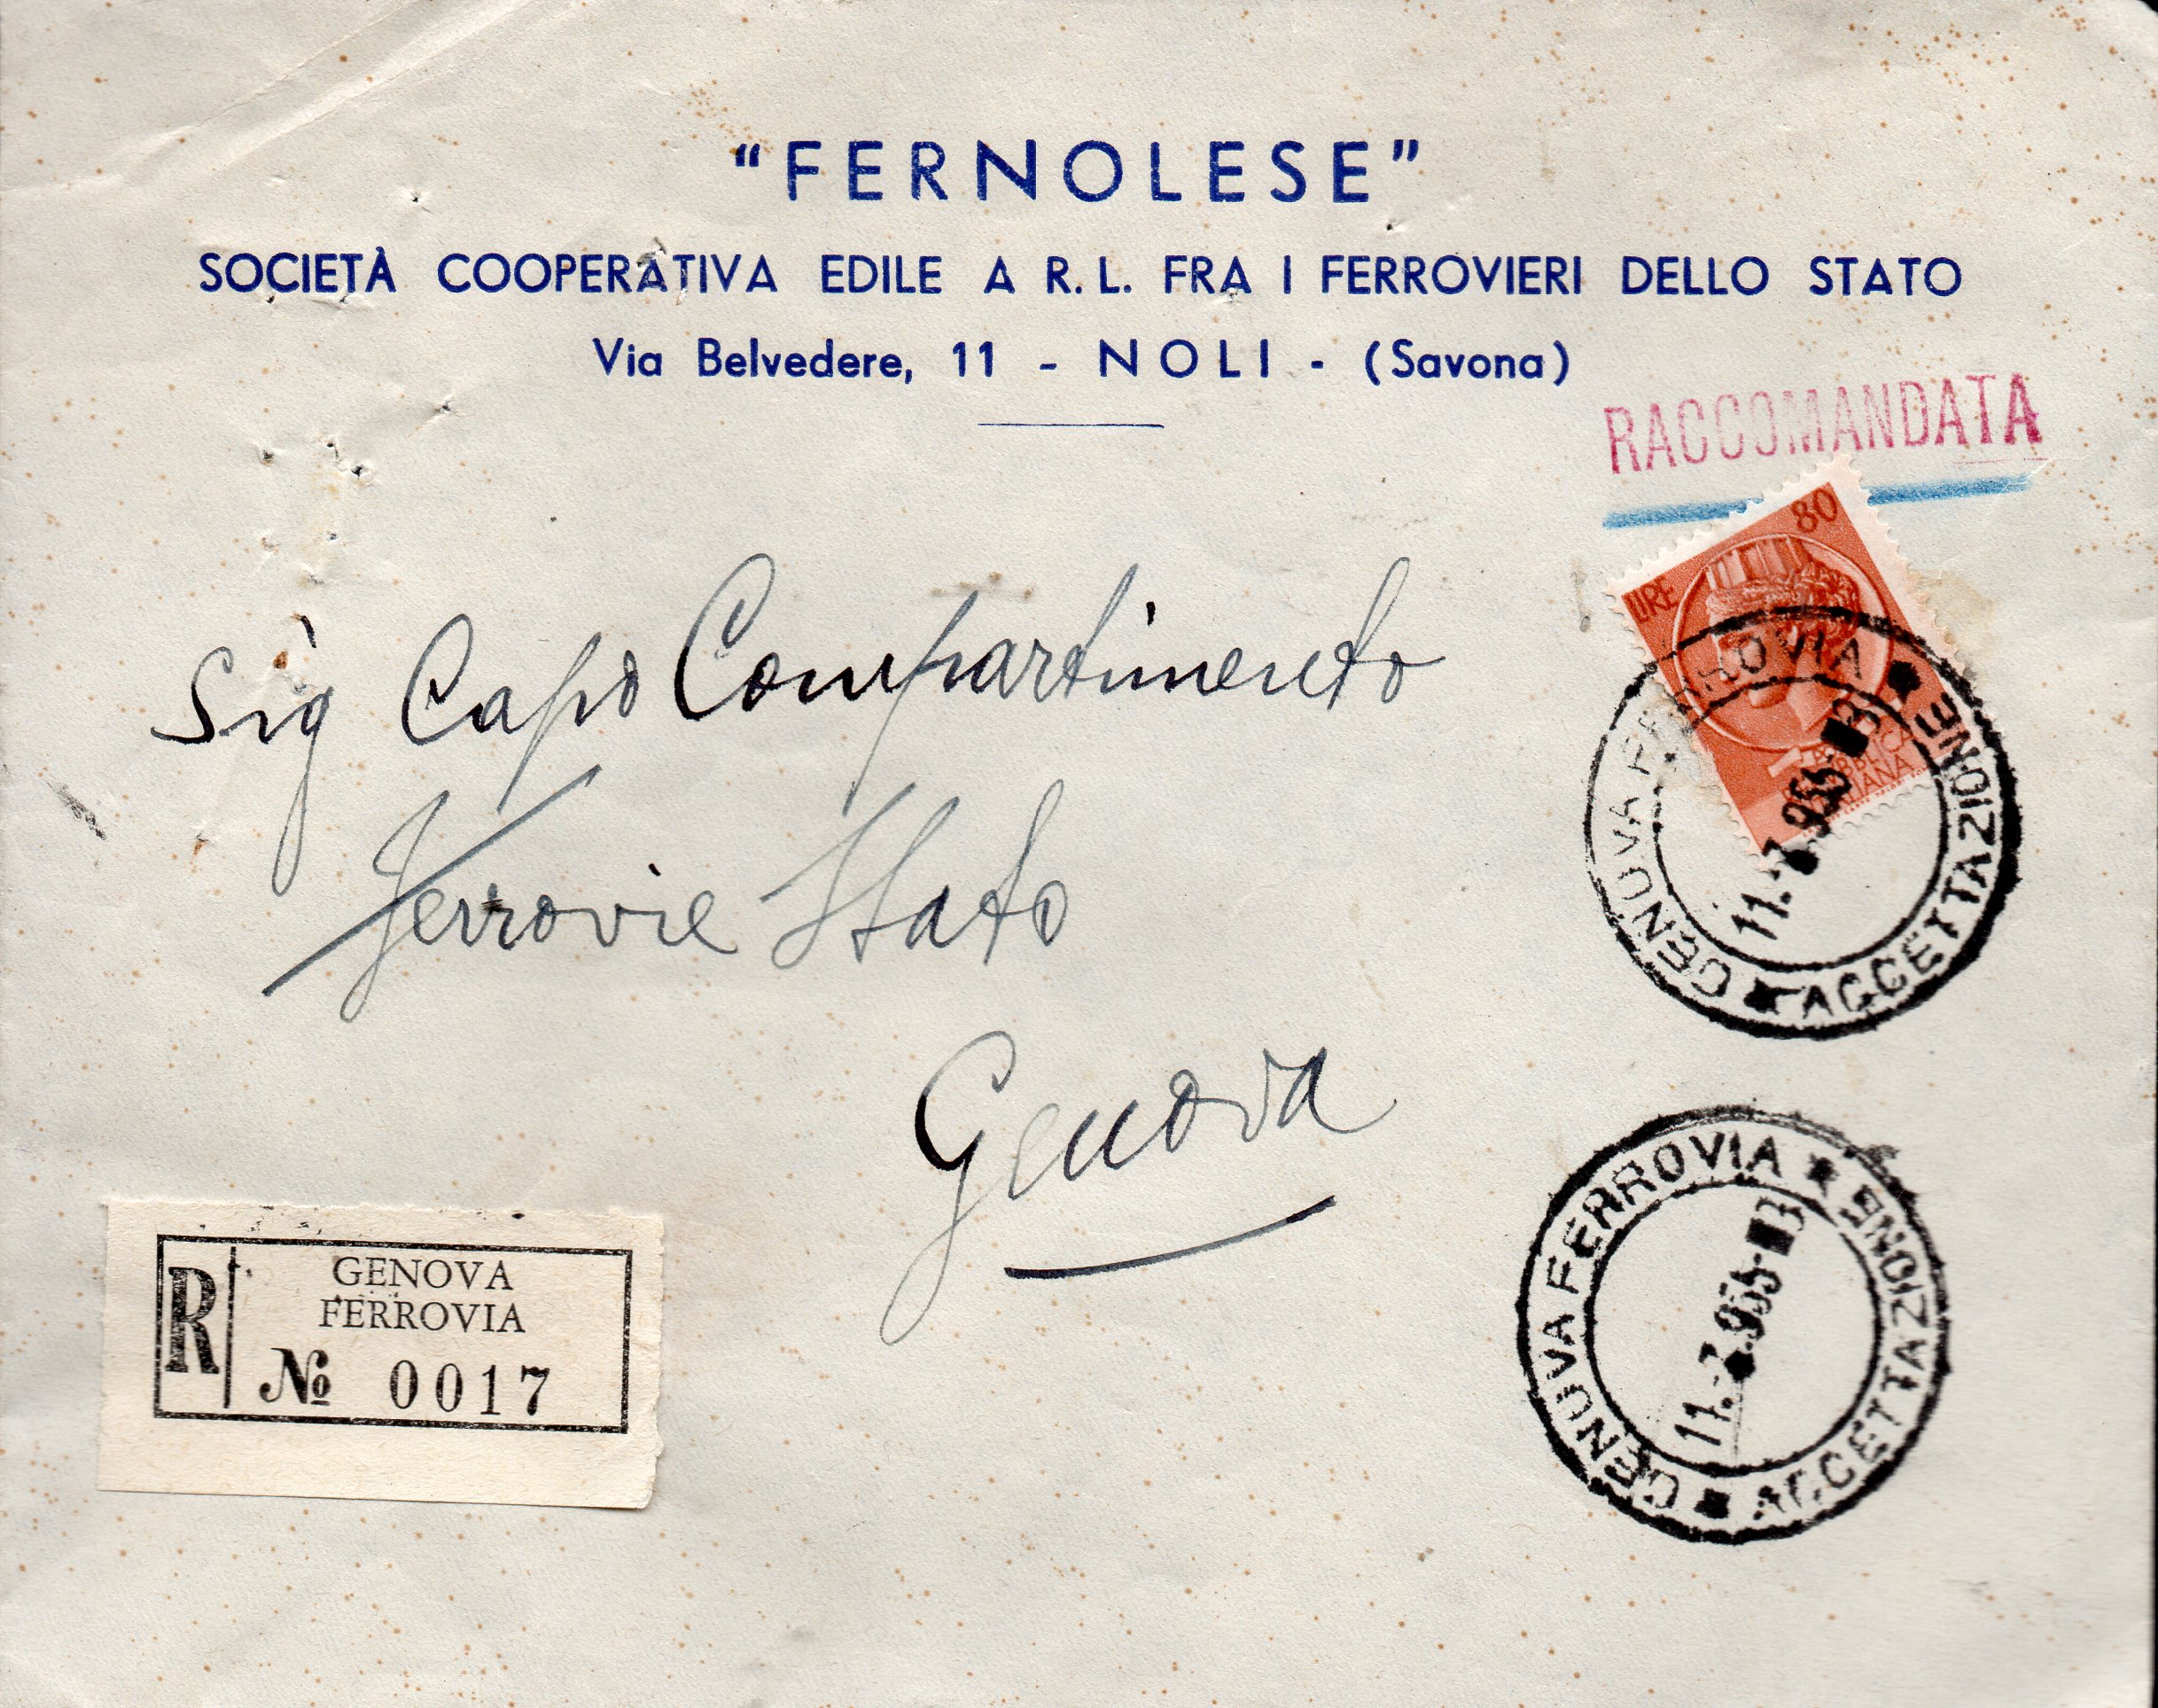 “FERNOLESE”
SOCIETÀ COOPERATIVA EDILE A R. L. FRA I FERROVIERI DELLO STATO
Via Belvedere, 11 - NOLI - (Savona)
RACCOMANDATA
LIRE 80
GENOVA FERROVIA ★ ACCETTAZIONE ★
Sig Capo Compartimento
Ferrovie Stato
Genova
R
GENOVA
FERROVIA
№ 0017
GENOVA FERROVIA ★ ACCETTAZIONE ★